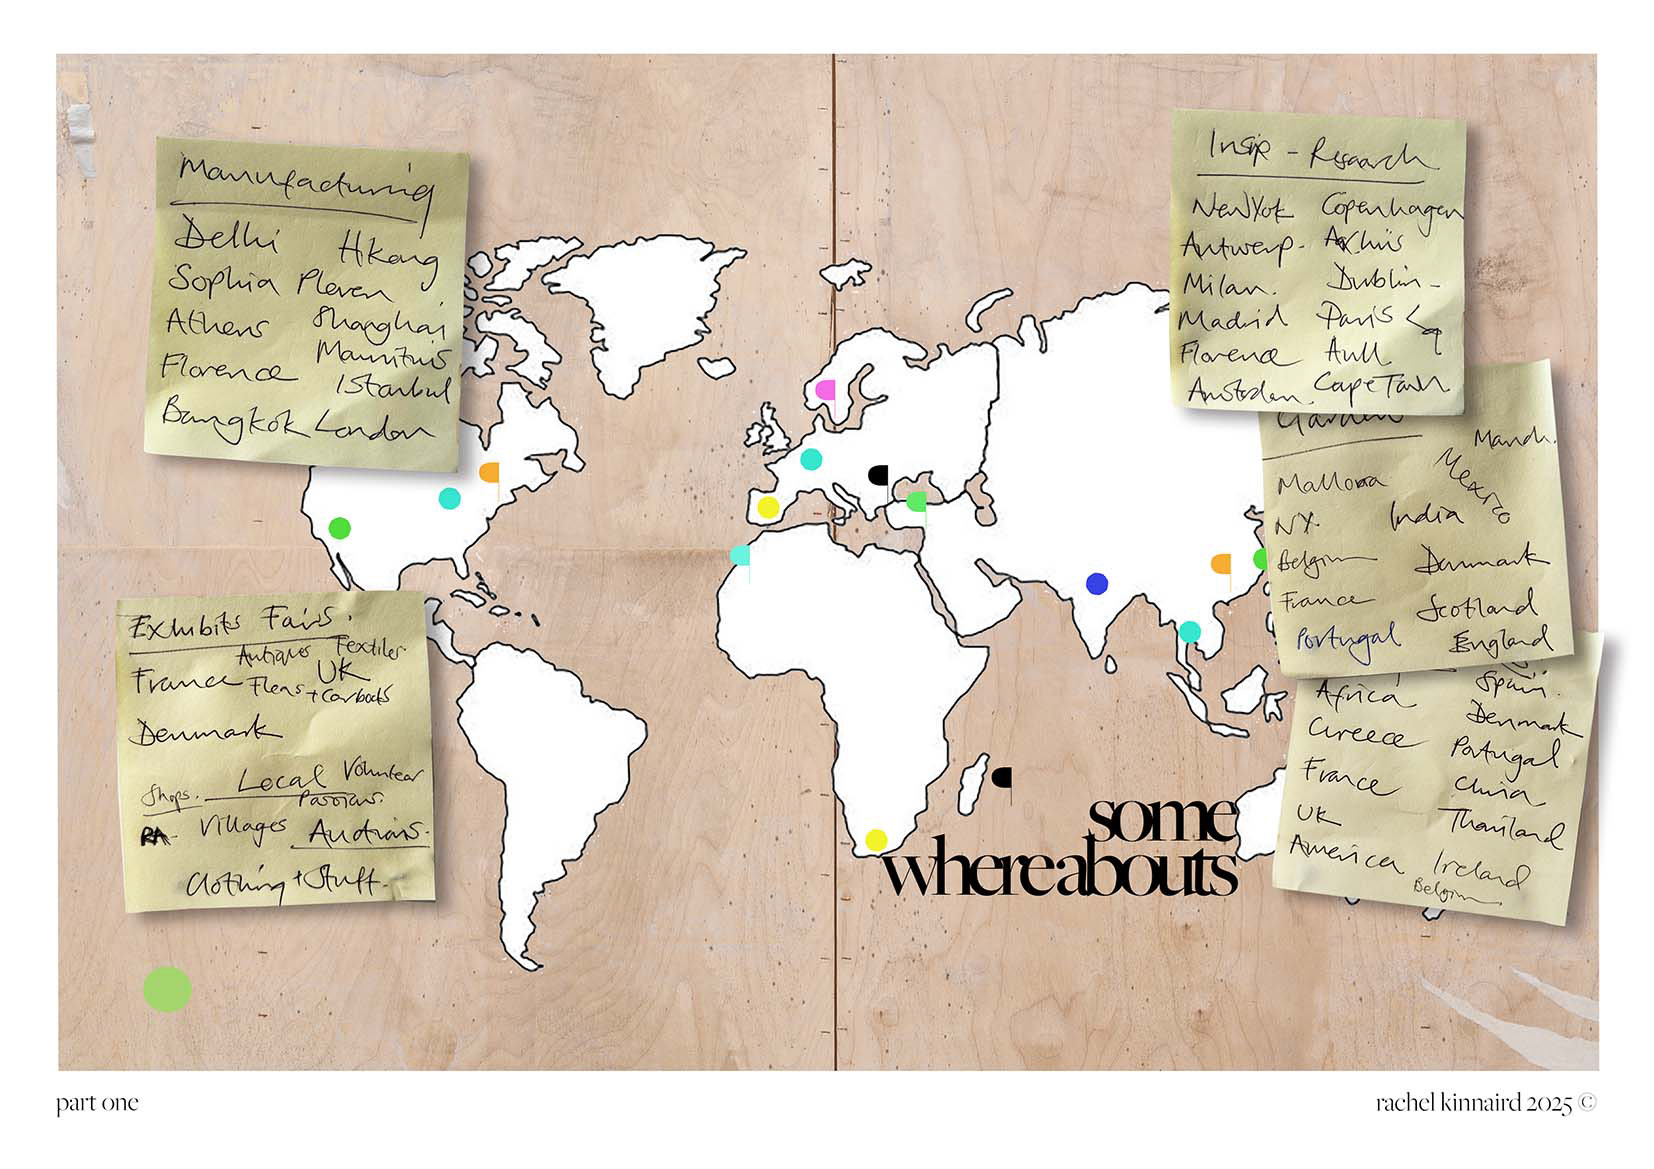 Manufacturing
Delhi Hkong
Sophia Pleven
Athens Shanghai
Florence Mauritius
Istanbul
Bangkok London
Insip - Research
NewYok Copenhagen
Antwerp - Aarhus
Milan. Dublin -
Madrid Paris
Florence Hull
Amsterdam. CapeTown
Garden
Manch.
Mallorca Mexico
NY. India
Belgium Denmark
France Scotland
Portugal England
Africa Spain.
Greece Denmark
France Portugal
UK China
America Thailand
Ireland
Belgium
Exhibits Fairs.
Antiques Textiles
France UK
Fleas + Carboots
Denmark
Shops. Local Volunteer
RA - Villages Auctions.
Clothing + Stuff.
some
whereabouts
part one
rachel kinnaird 2025 ©